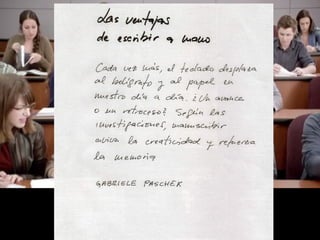 Las ventajas
de escribir a mano
Cada vez más, el teclado desplaza
al bolígrafo y al papel en
nuestro día a día. ¿Un avance
o un retroceso? Según las
investigaciones, manuscribir
aviva la creatividad y refuerza
la memoria
GABRIELE PASCHEK